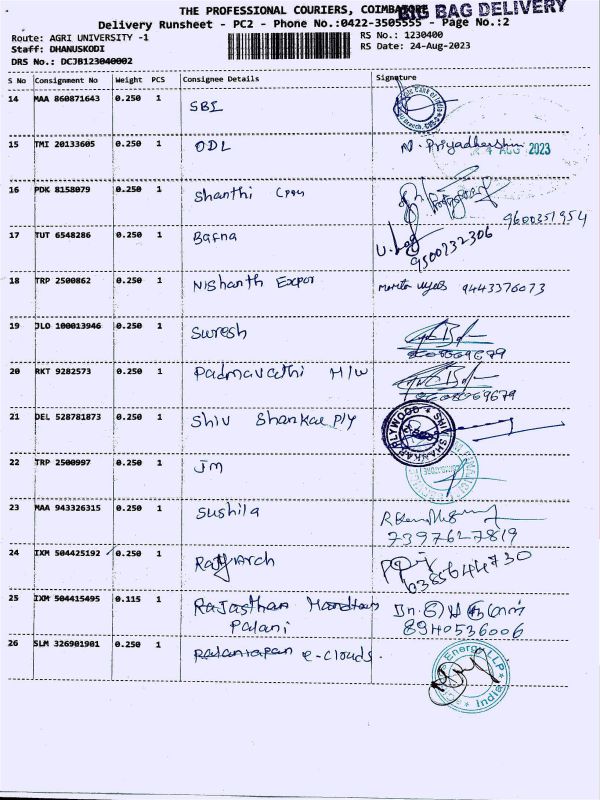 THE PROFESSIONAL COURIERS, COIMBATORE
BIG BAG DELIVERY
Delivery Runsheet - PC2 - Phone No.:0422-3505555 - Page No.:2
Route: AGRI UNIVERSITY -1 RS No.: 1230400
Staff: DHANUSKODI RS Date: 24-Aug-2023
DRS No.: DCJB123040002
S No Consignment No Weight PCS Consignee Details Signature
14 MAA 860871643 0.250 1 SBI
15 TMI 20133605 0.250 1 ODL N. Priyadharshini AUG 2023
16 PDK 8158079 0.250 1 Shanthi 9600351954
17 TUT 6548286 0.250 1 Bafna 9500232306
18 TRP 2500862 0.250 1 Nishanth Expor 9443376073
19 JLO 100013946 0.250 1 Suresh
20 RKT 9282573 0.250 1 Padmavathi H/W
21 DEL 528781873 0.250 1 Shiv Shankar Ply SHIV SHANKAR PLYWOOD
22 TRP 2500997 0.250 1 JM
23 MAA 943326315 0.250 1 Sushila 7397627819
24 IXM 504425192 0.250 1
25 IXM 504415495 0.115 1 Rajasthan
Palani 8940536006
26 SLM 326901901 0.250 1 e-clouds. Energy LLP India